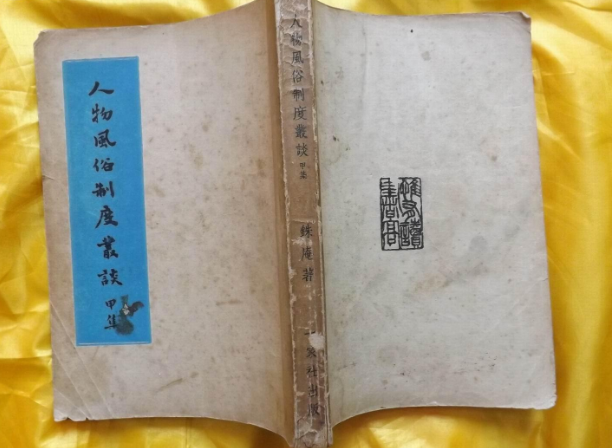 人物風俗制度叢談
甲集
人物風俗制度叢談 甲集
銖庵著
一家社出版